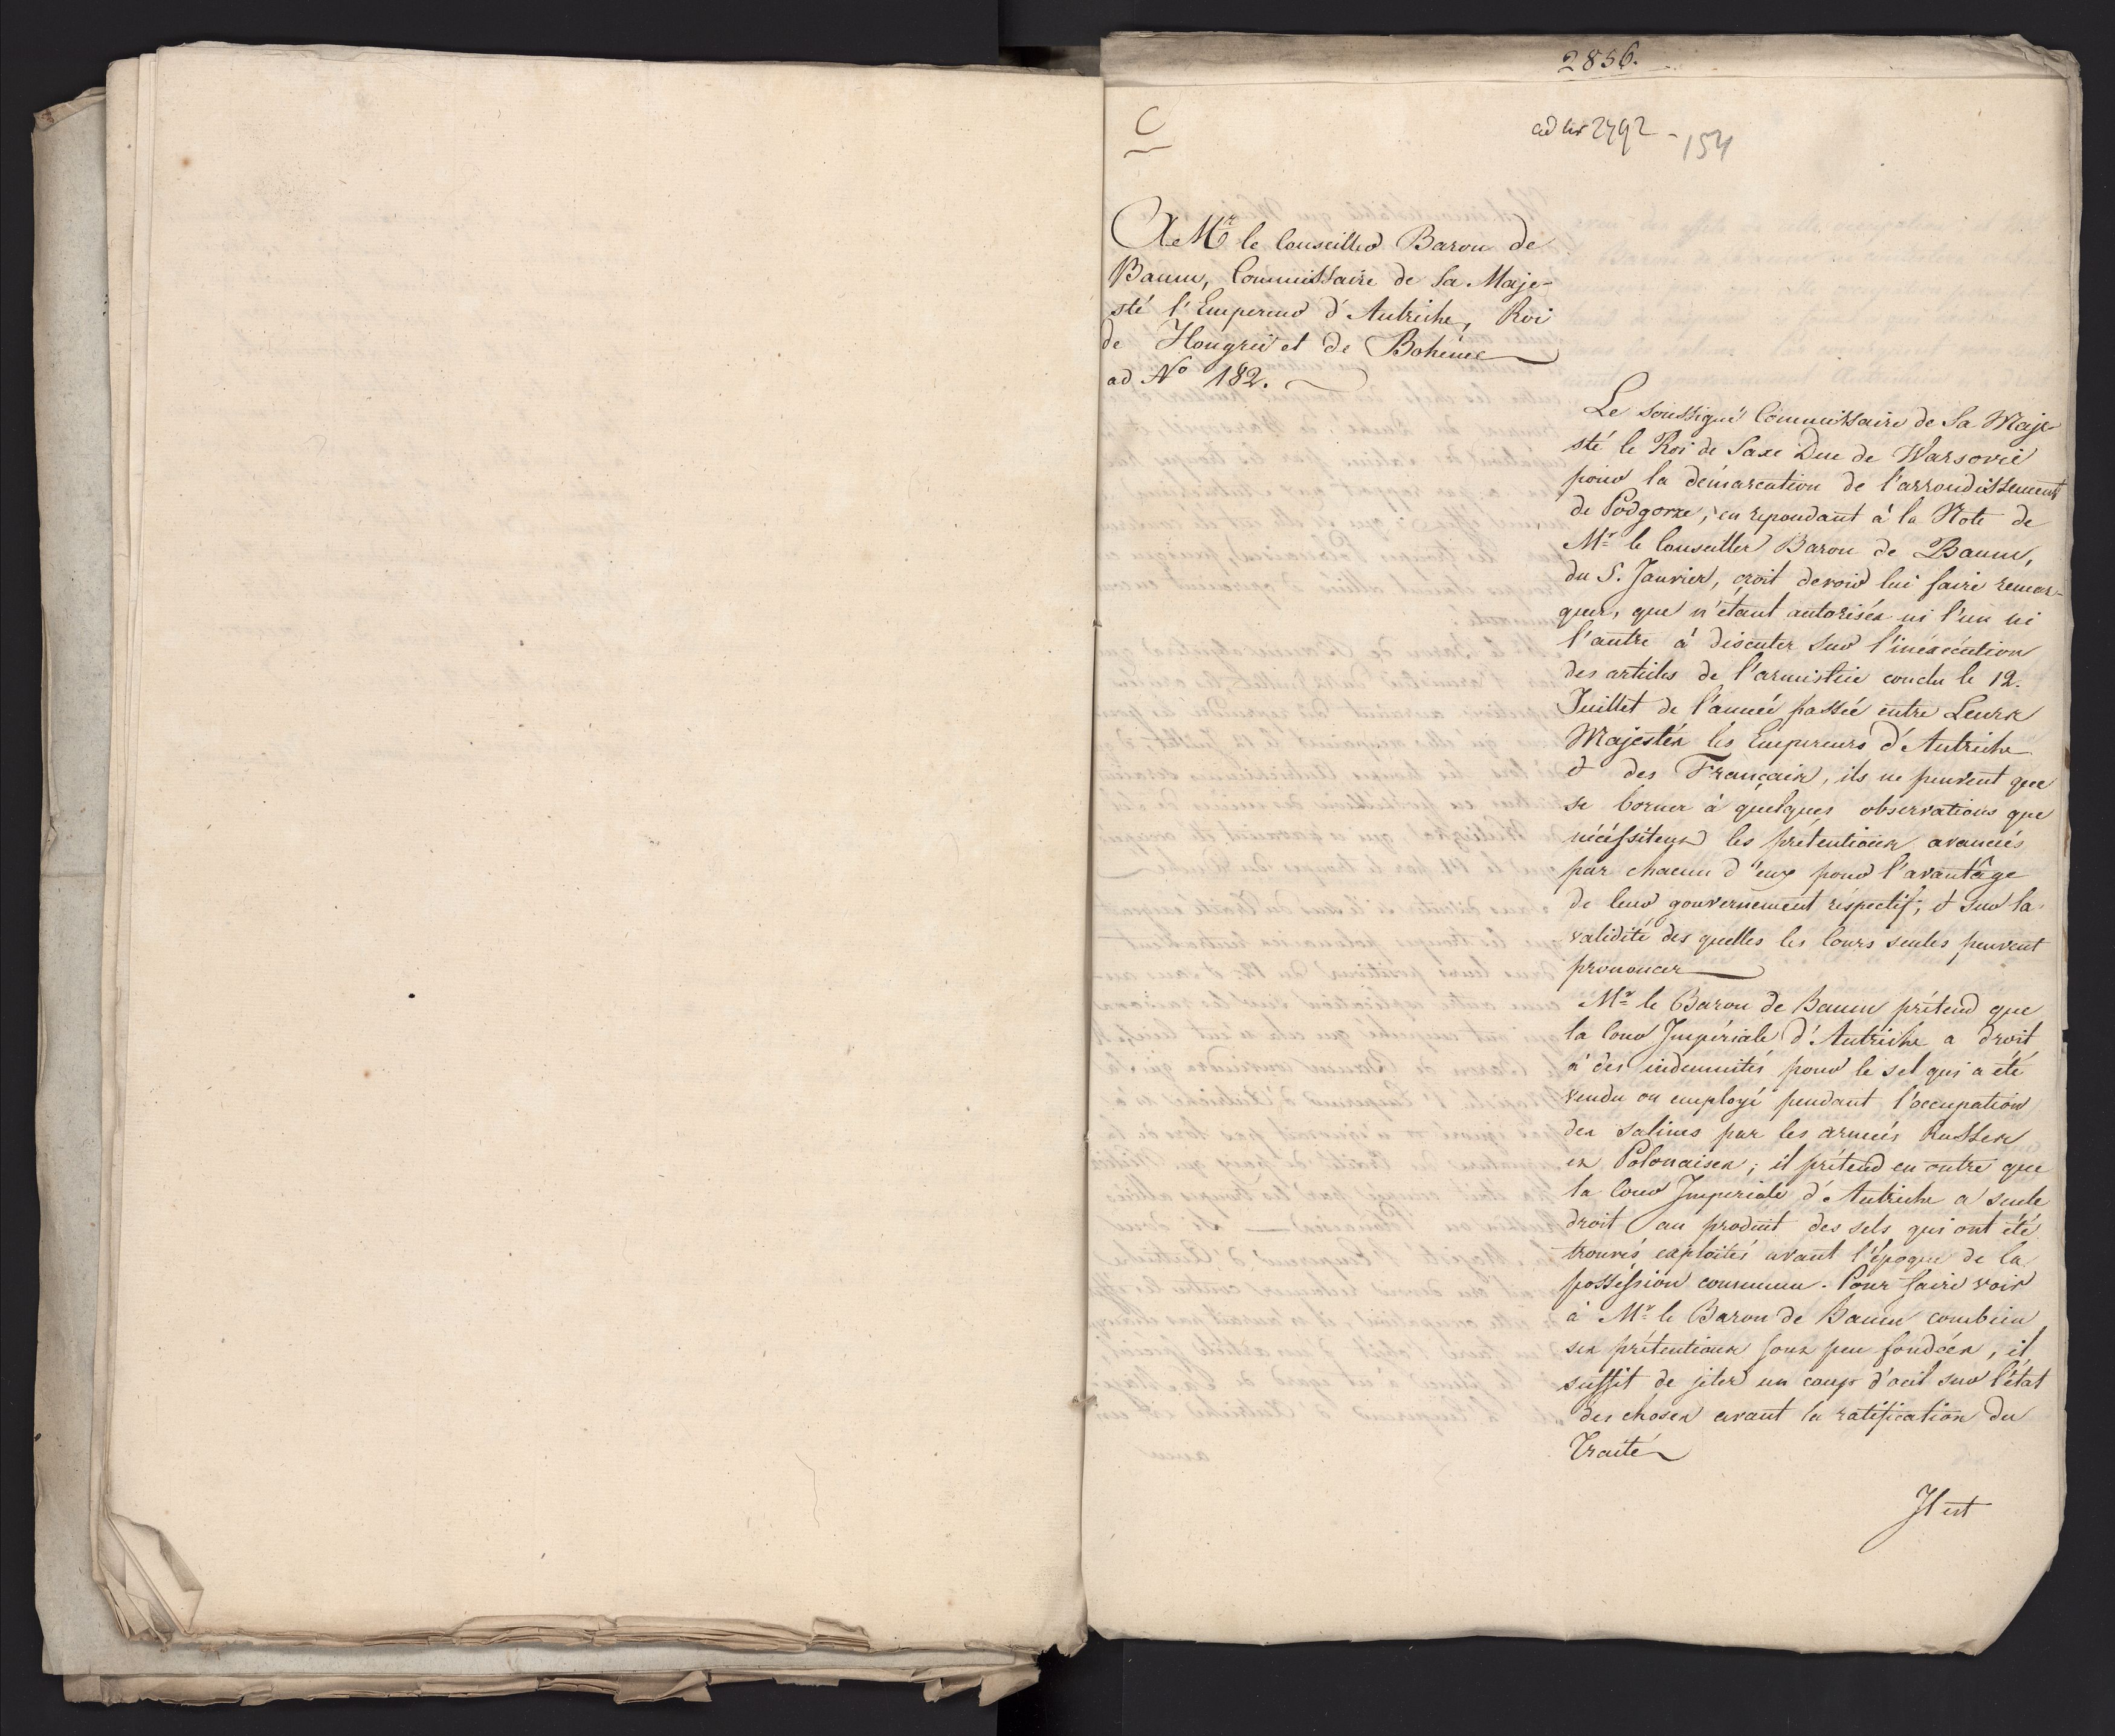 2856.
C
ad N 2792 -
154
A Mr le Conseiller Baron de
Baum, Commissaire de Sa Maje-
sté l'Empereur d'Autriche, Roi
de Hongrie et de Bohéme
ad No 182.
Le soussigné Commissaire de Sa Maje-
sté le Roi de Saxe Duc de Warsovie
pour la démarcation de l'arrondissement
de Podgorze, en repondant à la Note de
Mr le Conseiller Baron de Baum,
du 5. Janvier, croit devoir lui faire remar-
quer, que n'étant autorisés ni l'un ni
l'autre à discuter sur l'inéxécution
des articles de l'armistice conclu le 12.
Juillet de l'année passée entre Leurs
Majestés les Empereurs d'Autriche
et des Français, ils ne peuvent que
se borner à quelques observations que
nécéssitent les prétentions avancées
par chacun d'eux pour l'avantage
de leur gouvernement réspectif, et sur la
validité des quelles les Cours seules peuvent
prononcer
Mr le Baron de Baum prétend que
la Cour Impériale d'Autriche a droit
à des indemnités pour le sel qui a été
vendu ou employé pendant l'occupation
des salines par les armées Russes
et Polonaises; il prétend en outre que
la Cour Imperiale d'Autriche a seule
droit au produit des sels qui ont été
trouvés exploités avant l'époque de la
posséssion commune. Pour faire voir
à Mr le Baron de Baum combien
ses prétentions sont peu fondées, il
suffit de jeter un coup d'oeil sur l'état
des choses avant la ratification du
Traité
Il est